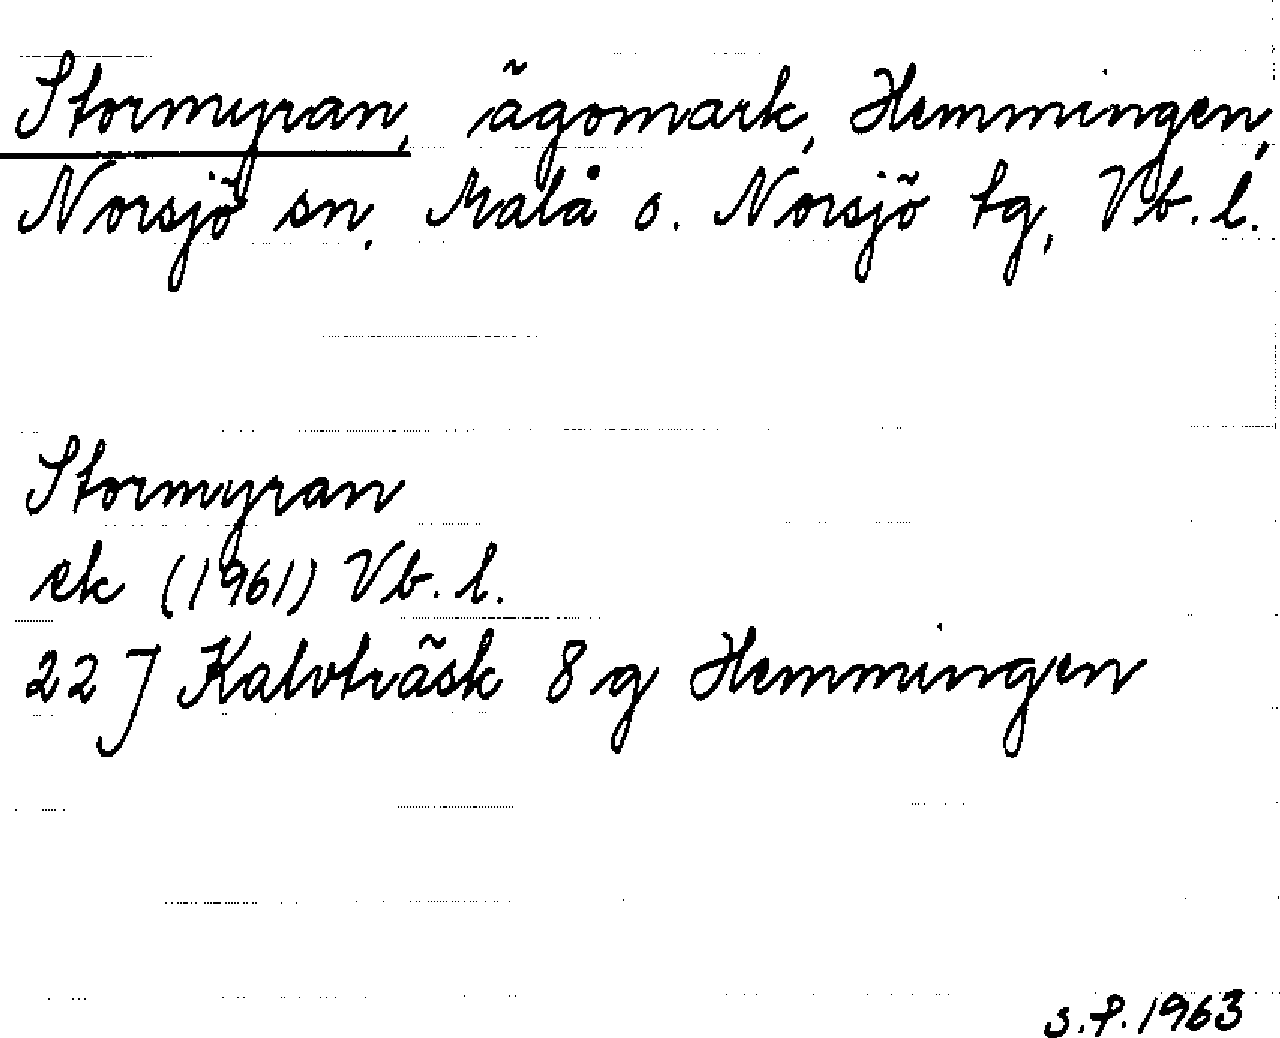 Stormyran, ägomark, Hemmingen,
Norsjö sn. Malå o. Norsjö tg, Vb. l.
Stormyran
ek (1961) Vb. l.
22 J Kalvträsk 8 g Hemmingen
s.f. 1963